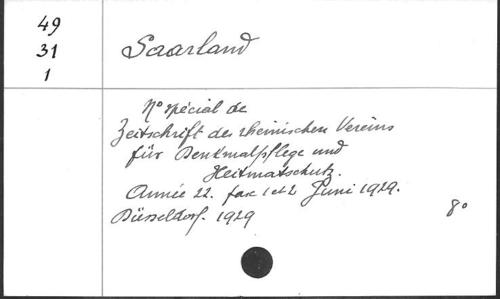 49
31
1
Saarland
No spécial de
Zeitschrift des rheinischen Vereins
für Denkmalpflege und
Heitmatschutz.
Année 22. fax 1 et 2 Juni 1929.
Düsseldorf. 1929
8o